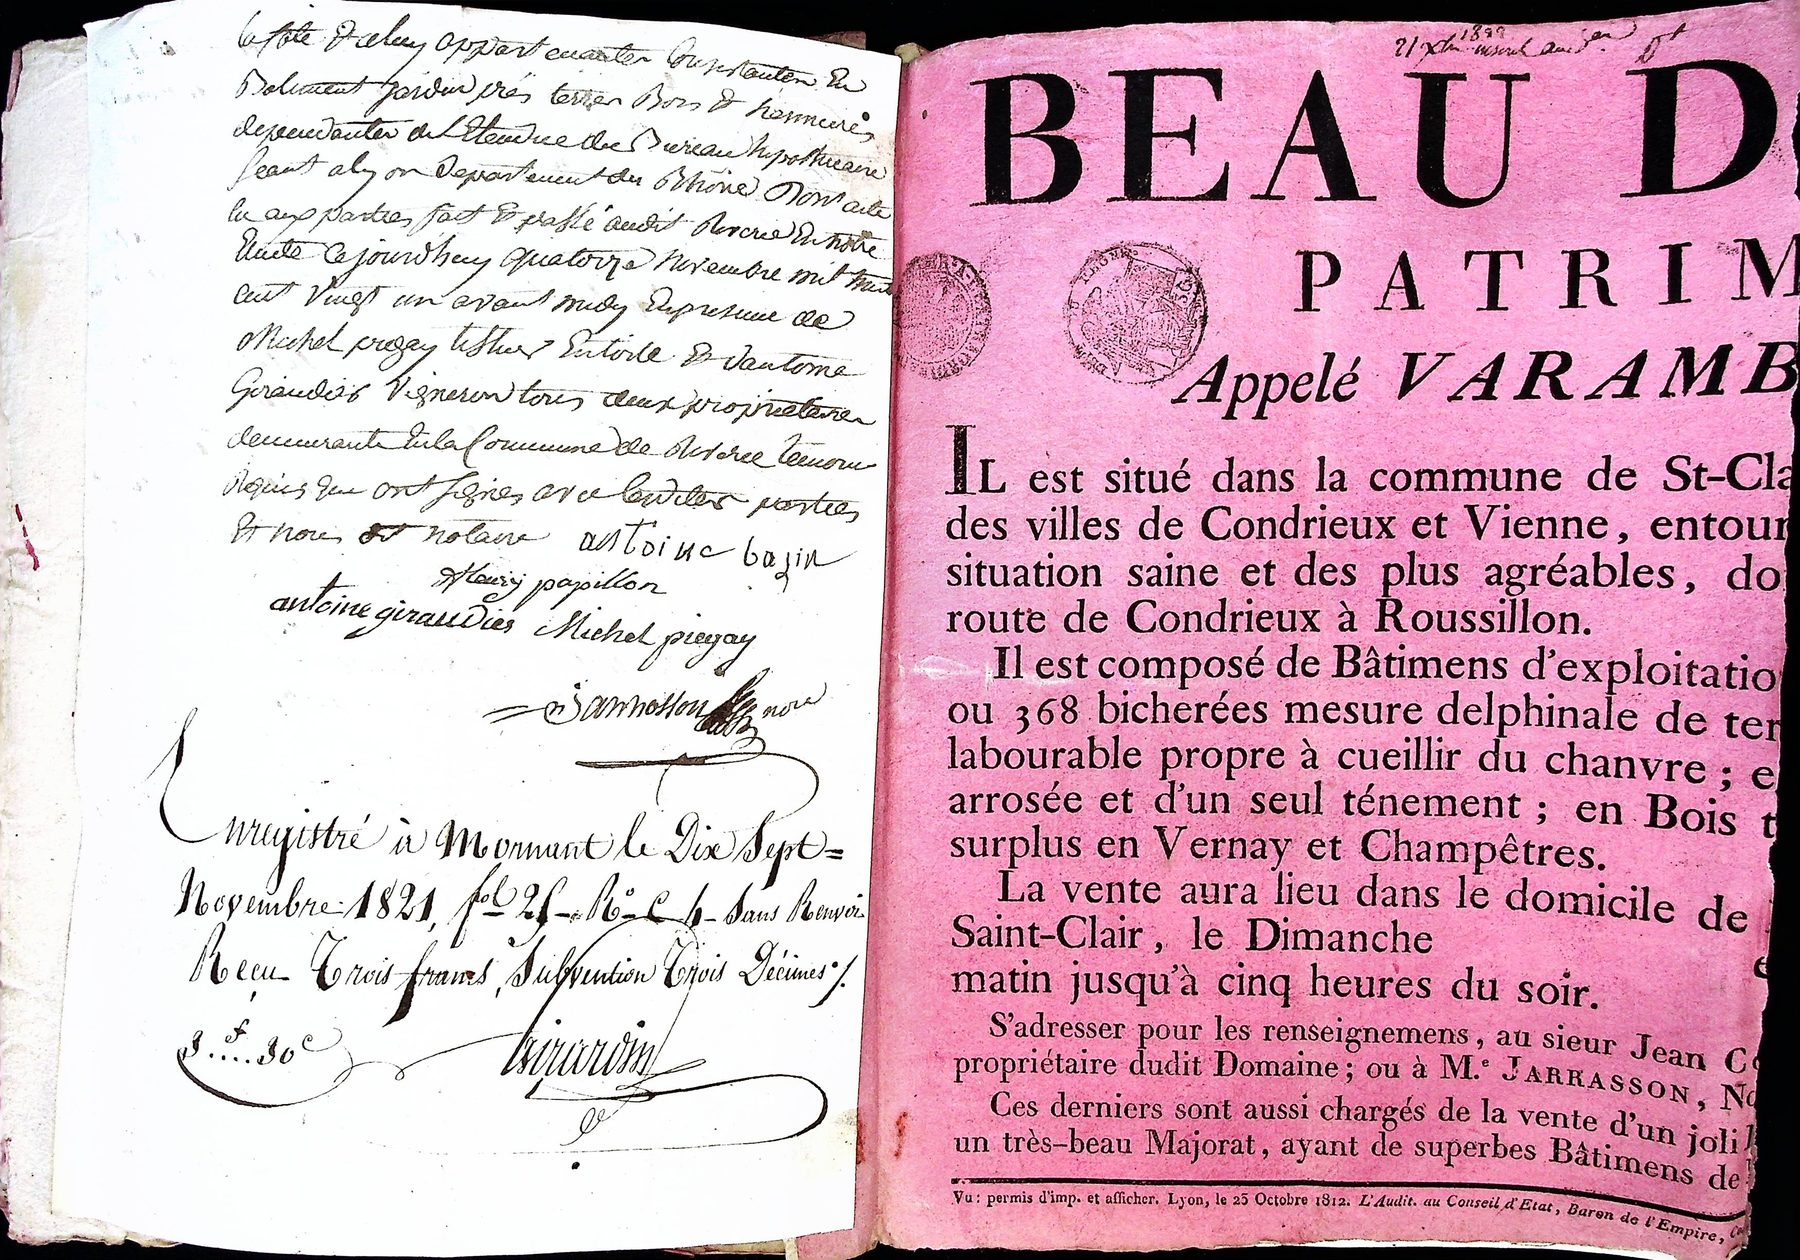 la fote et celuy appartenantes Consistantes En
Batiment jardin prés terres Bois et hermeures
dependantes de l'Etendue du Bureau hypothecaire
seant alyon Departement du Rhône Dont acte
lu aux parties fait et passé audit Riverie En notre
Etude Cejourdhuy quatorze Novembre mil huit
cent vingt un avant midy En presence de
Michel piegay tissier En toile et d'antoine
Giraudies Vigneron tous deux proprietaires
demeurants En la Commune de Riverie temoins
Requis qui ont signés avec lesdites parties
Et nous dt notaire antoine bazin
fleury papillon
antoine giraudies Michel piegay
Jarrosson nore
Enregistré à Mornant le Dix Sept=
Novembre 1821, fol 25 Ro C 4 Sans Renvoi
Recu Trois francs, Subvention Trois Décimes /.
3f....30c
Girardin
21 Xbre 1822
BEAU D
PATRIM
Appelé VARAMB
IL est situé dans la commune de St-Cla
des villes de Condrieux et Vienne, entour
situation saine et des plus agréables, do
route de Condrieux à Roussillon.
Il est composé de Bâtimens d'exploitatio
ou 368 bicherées mesure delphinale de ter
labourable propre à cueillir du chanvre ; e
arrosée et d'un seul ténement ; en Bois t
surplus en Vernay et Champêtres.
La vente aura lieu dans le domicile de
Saint-Clair, le Dimanche
matin jusqu'à cinq heures du soir.
S'adresser pour les renseignemens, au sieur Jean C
propriétaire dudit Domaine ; ou à M.e JARRASSON, No
Ces derniers sont aussi chargés de la vente d'un joli
un très-beau Majorat, ayant de superbes Bâtimens de
Vu : permis d'imp. et afficher. Lyon, le 25 Octobre 1812. L'Audit. au Conseil d'Etat, Baron de l'Empire,